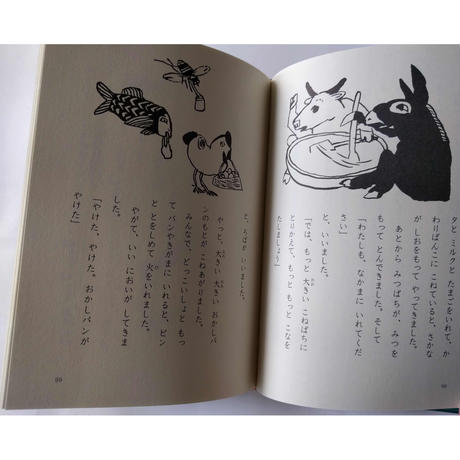 タと ミルクと たまごをいれて、か
わりばんこに こねていると、さかな
がしおをもって やってきました。
あとから みつばちが、みつを
もって とんできました。そして
「わたしも、なかまに いれてくだ
さい」
と、いいました。
「では、もっと 大きい こねばちに
とりかえて、もっと もっと こなを
たしましょう」
と、ろばが いいました。
やっと、大きい 大きい おかしパ
ンのもとが こねあがりました。
みんなで、どっこいしょと もっ
て パンやきがまに いれると、ピン
と とをしめて 火をいれました。
やがて、いい においが してきま
した。
「やけた、やけた、おかしパンが
やけた」